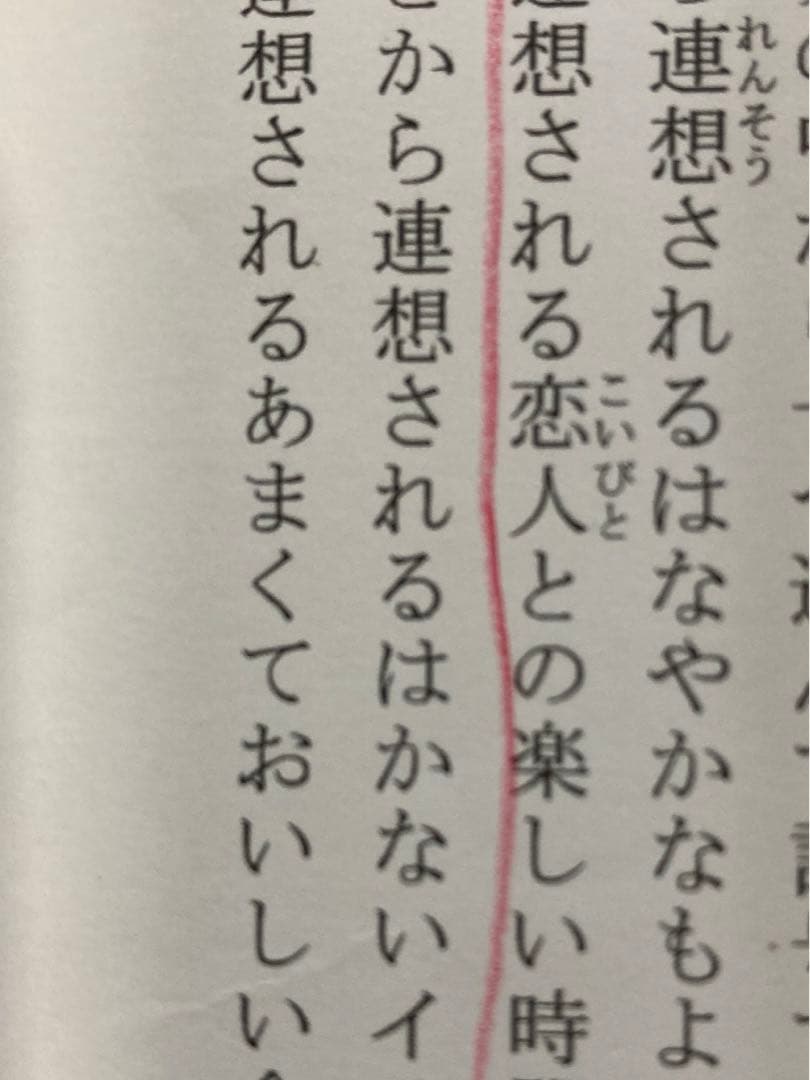 連想されるはなやかなもよ
想される恋人との楽しい時
から連想されるはかないイ
想されるあまくておいしい